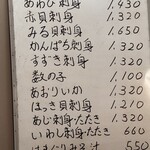 あわび刺身 1,430
赤貝刺身 1,320
みる貝刺身 1,650
かんぱち刺身 1,320
すずき刺身 1,320
数の子 1,100
あおりいか 1,320
ほっき貝刺身 1,210
あじ刺身・たたき 1,320
いわし刺身・たたき 660
はまぐりみそ汁 550